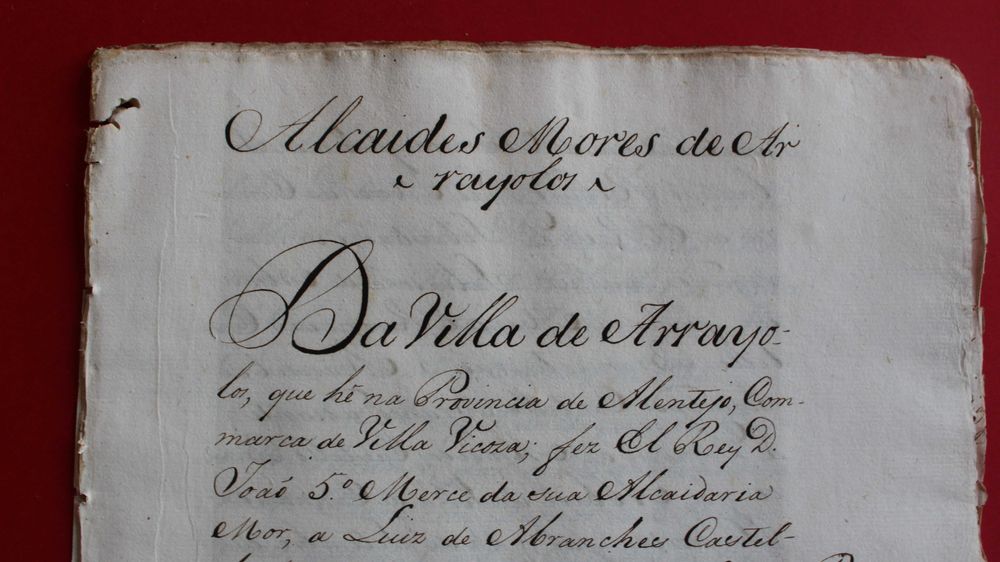 Alcaides Mores de Ar
rayolos
Da Villa de Arrayo-
los, que hé na Provincia de Alentejo, Com-
marca de Villa Vicoza; fez El Rey D.
Joaõ 5.º Merce da sua Alcaidaria
Mor, a Luiz de Abranches Castel-